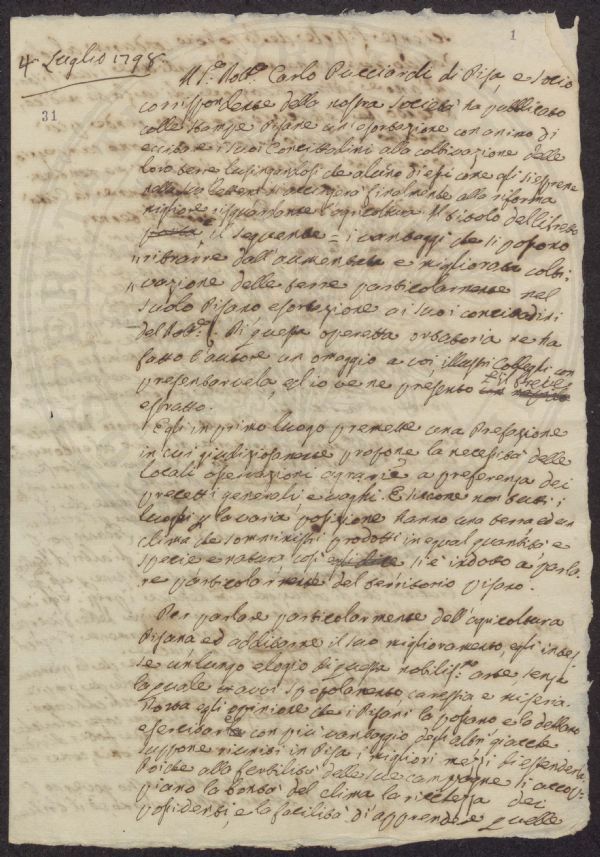 1
4 Luglio 1798.
31
Il S.r Dott.r Carlo Pucciardi di Pisa, e Socio
corrispondente della nostra Società ha pubblicato
colle stampe Pisane un'esortazione con animo di
eccitare i suoi Concittadini alla coltivazione delle
loro terre lusingandosi che alcuno di essi come egli si esprime
nella sua lettera s'accingerà finalmente alla riforma
migliore risguardante l'agricoltura. Il titolo del libretto
è il seguente = i vantaggi che si possono
" ritrarre dall'aumentata e migliorata colti
" vazione delle terre particolarmente nel
" suolo Pisano esortazione ai suoi concittadini
del Dott.r P. Di questa operetta ortatoria ne ha
fatto l'autore un omaggio a voi, illustri Colleghi con
presentarvela, ed io ve ne presento un breve
estratto.
Egli in primo luogo premette una Prefazione
in cui giudiziosamente propone la necessità delle
locali operazioni agrarie a preferenza dei
precetti generali e vaghi. E siccome non tutti i
luoghi p la varia posizione hanno una terra ed un
clima che somministri prodotti in egual quantità e
specie e natura così si è indotto a parla
re particolarmente del territorio pisano.
Per parlare particolarmente dell'agricoltura
Pisana ed additarne il suo miglioramento, egli intes
se un lungo elogio di questa nobilis.ma arte, senza
la quale havvi spopolamento, carestia e miseria.
Porta egli opinione che i Pisani la possano e la debbano
esercitare con più vantaggio degli altri giacchè
suppone riuniti in Pisa i migliori mezzi di estenderla
Poichè alla fertilità delle sue campagne si accop=
piano la bontà del clima la ricchezza dei
possidenti, e la facilità d'apprendere quelle